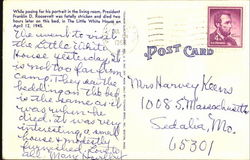 While posing for his portrait in the living room, President
Franklin D. Roosevelt was fatally stricken and died two
hours later on this bed, in The Little White House on
April 12, 1945.
We went to visit
the Little White
House yesterday. It
is not too far from
camp. They say the
bedding on the bed
is the same as it
was when he
died. It was very
interesting, a small
house modestly
furnished. Love to
all, Mary
POST CARD
Mrs Harvey Keens
1008 S. Massachusetts
Sedalia, Mo.
65301